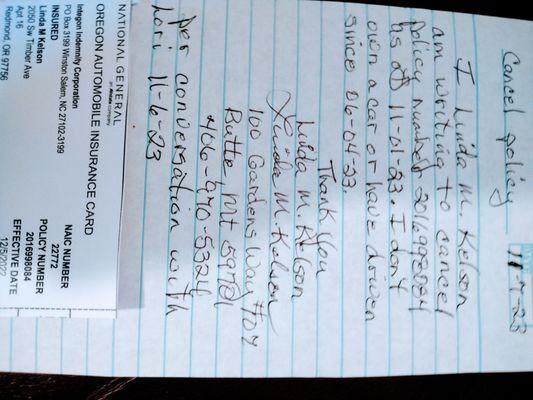 Cancel policy
11-7-23
I Linda M. Kelson
am writing to cancel
policy number 2016998084
as of 11-01-23. I don't
own a car or have driven
since 06-04-23.
Thank you
Linda M. Kelson
Linda M. Kelson
100 Gardens Way
Butte Mt 59701
406-940-5324
per conversation with
Lori 11-6-23
NATIONAL GENERAL
an Allstate company
OREGON AUTOMOBILE INSURANCE CARD
Integon Indemnity Corporation
PO Box 3199 Winston Salem, NC 27102-3199
INSURED
Linda M Kelson
2050 Sw Timber Ave
Apt 16
Redmond, OR 97756
NAIC NUMBER
22772
POLICY NUMBER
2016998084
EFFECTIVE DATE
12/5/2022